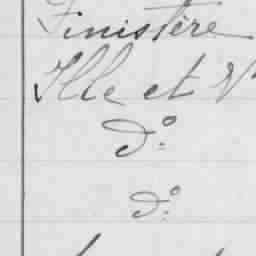 Finistère
Ille et V
d°
d°